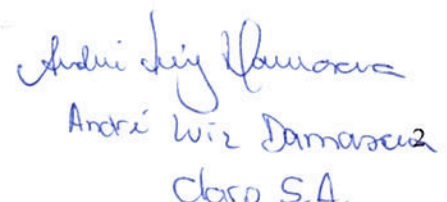 André Luiz Damasceno
André Luiz Damascen 2
Claro S.A.